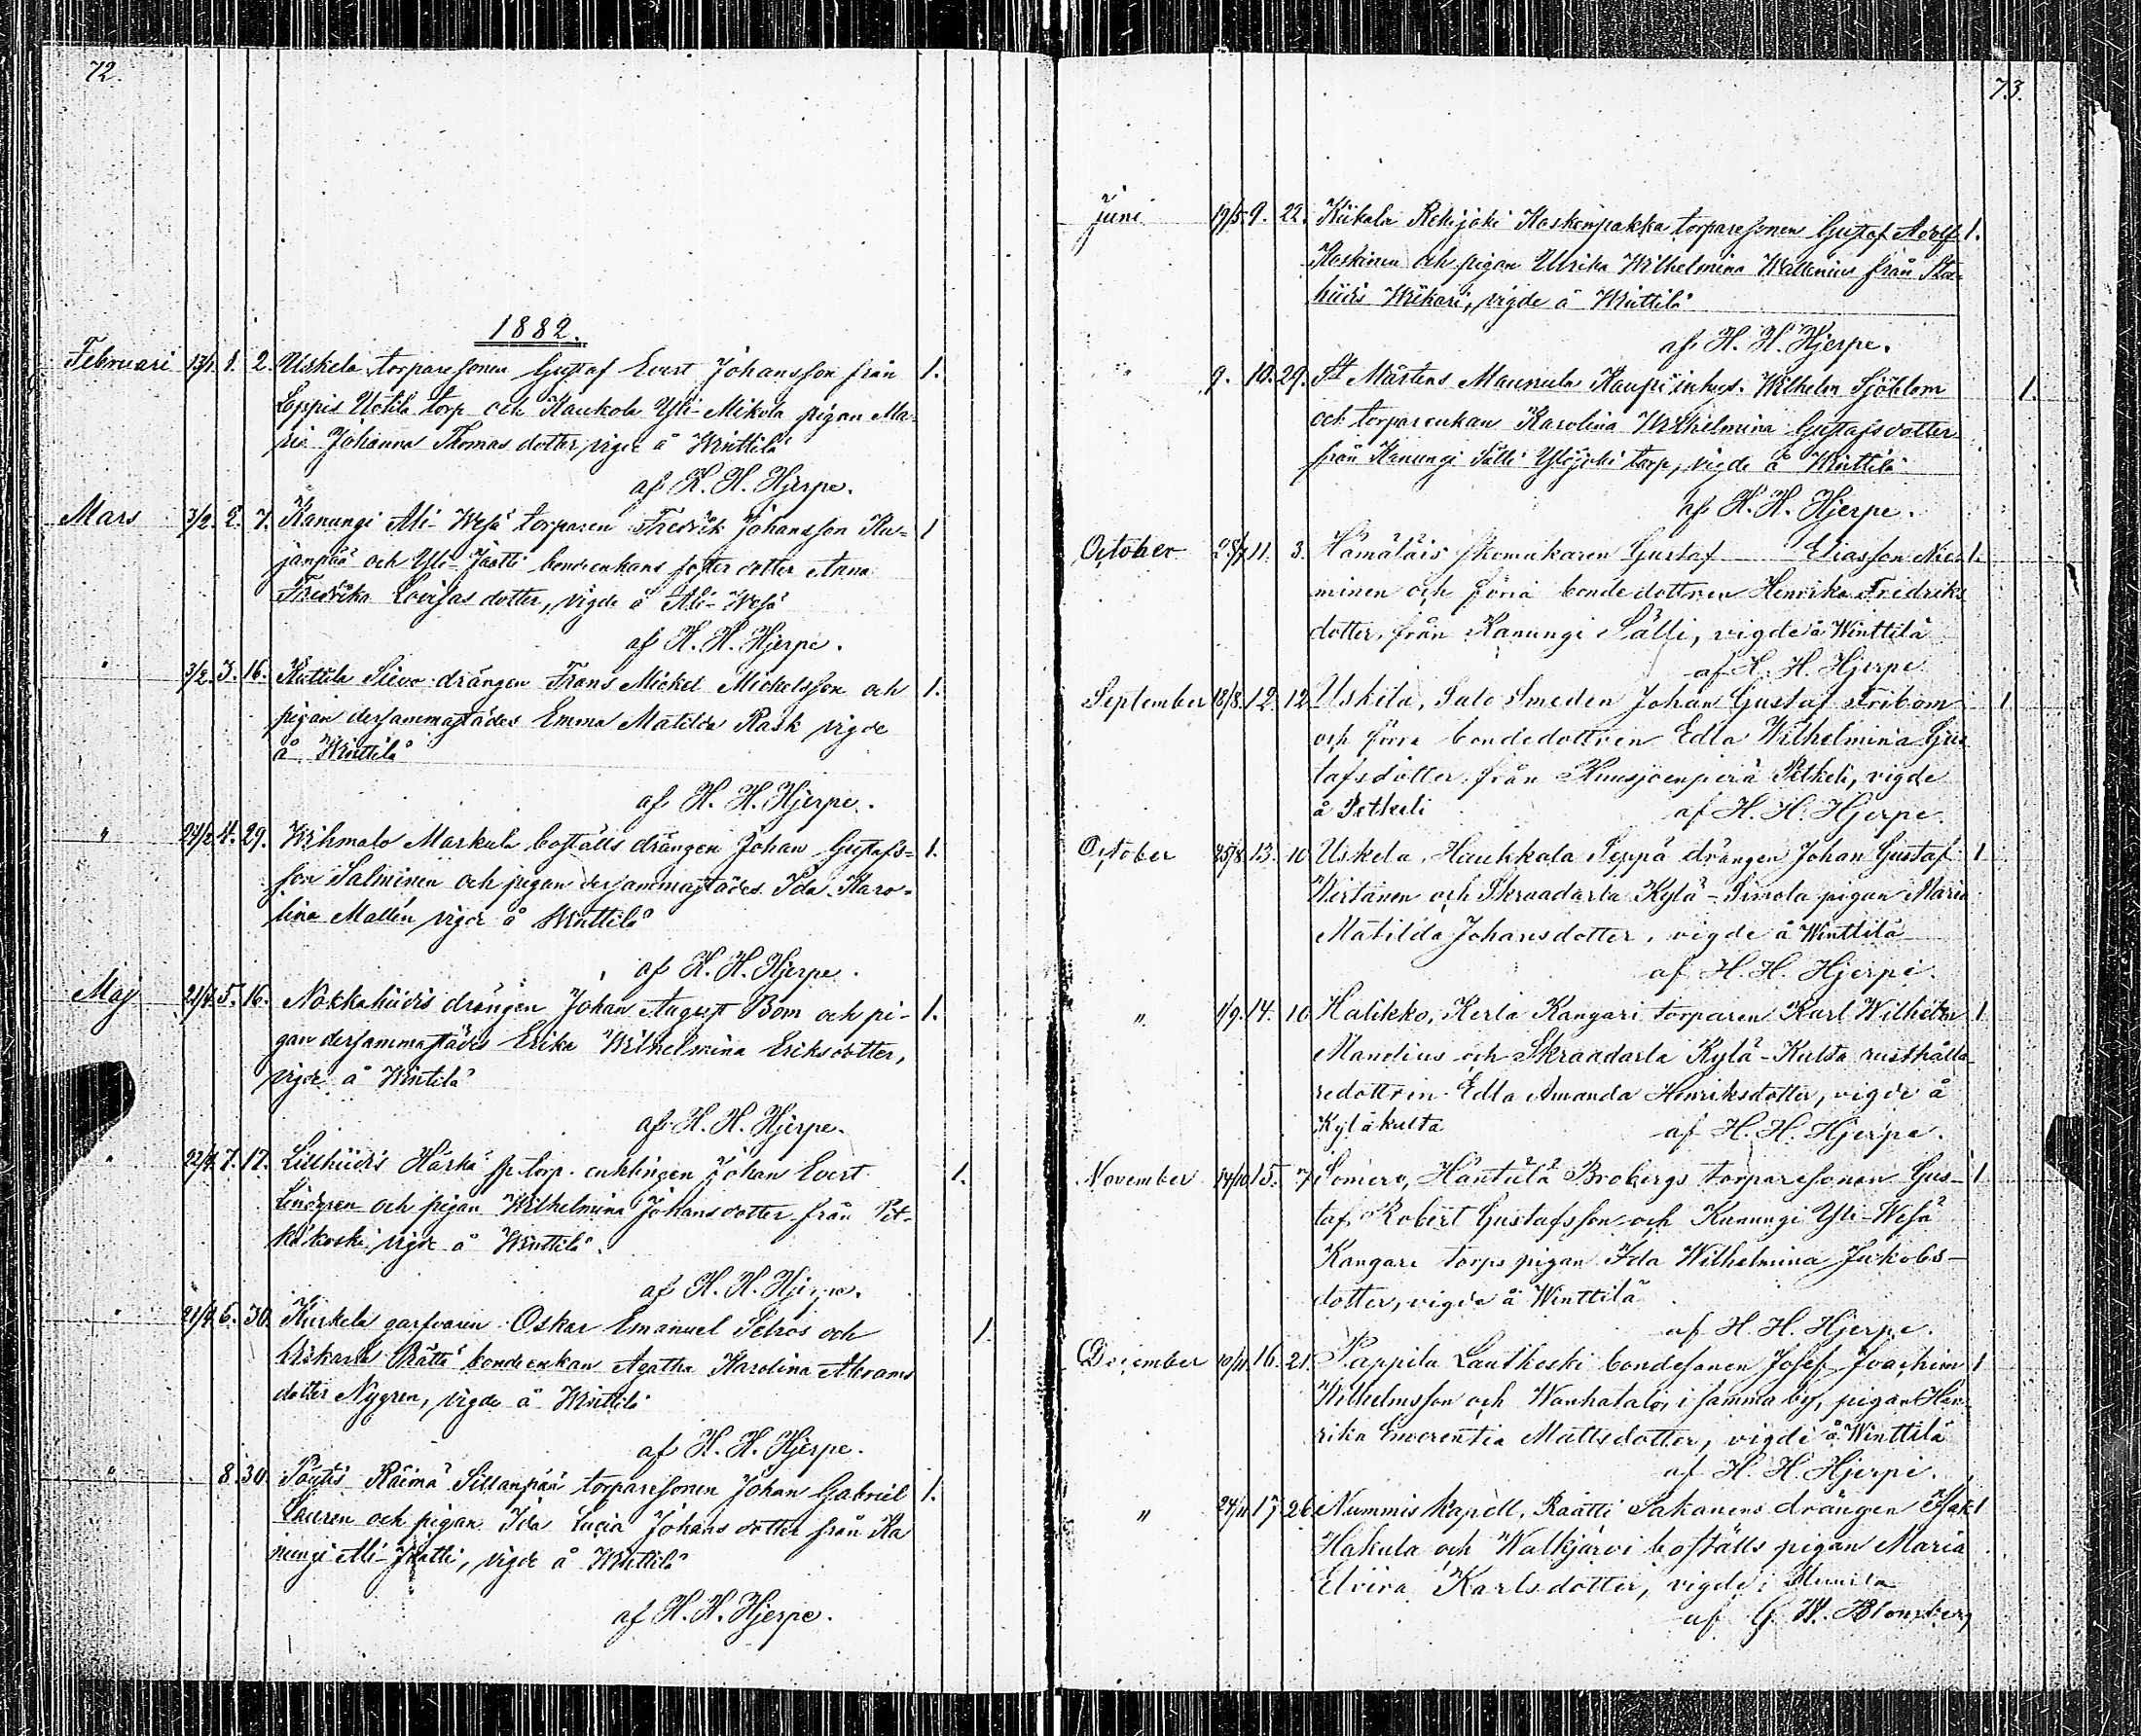 72.
1882.
Februari 13/1. 1. 2. Uskela torparesonen Gustaf Evert Johansson från 1.
Leppis Uotila torp och Kaukola Yli-Mikola pigan Ma-
ria Johanna Thomasdotter, vigde å Winttilä
af H. H. Hjerpe.
Mars 3/2. 2. 7. Kanungi Ali-Wesa torparen Fredrik Johansson Ku- 1
janpää och Yli-Jaatti bondenhans foster dotter Anna
Fredrika Lovisas dotter, vigde å Ali-Wesa
af H. H. Hjerpe.
" 3/2. 3. 16. Kuttila Sievo drängen Frans Mickel Mickelsson och 1.
pigan dersammastädes Emma Matilda Rask vigde
å Winttilä
af H. H. Hjerpe.
" 24/2 4. 29. Wihmalo Markula boställs drängen Johan Gustafs- 1.
son Salminen och pigan dersammastädes Ida Karo-
lina Mallén vigde å Winttilä
af H. H. Hjerpe.
Maj 21/4. 5. 16. Nokkahiidis drängen Johan August Bom och pi- 1.
gan dersammastädes Erika Wilhelmina Eriksdotter,
vigde å Wintilä
af H. H. Hjerpe.
" 22/4. 7. 17. Lillhiidis Härkä torp. enklingen Johan Evert 1.
Lindgren och pigan Wilhelmina Johansdotter från Pit-
käkoski, vigde å Winttilä.
af H. H. Hjerpe.
" 21/4. 6. 30. Kurkela garfvaren Oskar Emanuel Selros och 1
Rätti bondeenkan Agatha Karolina Abrams
dotter Nygren, vigde å Winttilä
af H. H. Hjerpe.
" 8. 30. Pöytis Raimä Sillanpää torparesonen Johan Gabriel 1.
Lauren och pigan Ida Lucia Johansdotter från Ka
nungi Ali-Jaatti, vigde å Winttilä
af H. H. Hjerpe.
73.
Juni 19/5. 9. 22. Kiikala Rekijoki Koskenpakka torparesonen Gustaf Adolf 1.
Koskinen och pigan Ulrika Wilhelmina Wallenius från Stor-
hiidis Wiikari, vigde å Winttilä
af H. H. Hjerpe.
" 9. 10. 29. St Mårtens Maunula Kaupi inhys. Wilhelm Sjöblom 1.
och torparenkan Karolina Wilhelmina Gustafsdotter
från Kanungi Sälli Ylöjoki torp, vigde å Winttilä
af H. H. Hjerpe.
October 11. 3. Hämäläis skomakaren Gustaf Eliasson Nie- 1.
minen och förra bondedottren Henrika Fredriks
dotter, från Kanungi Sälli, vigde å Winttilä
af H. H. Hjerpe
September 18/8. 12. 12 Uskela, Salo Smeden Johan Gustaf Fribom 1
och förra bondedottren Edla Wilhelmina Gus
tafsdotter från Kuusjoenperä Pitkeli, vigde
å Petkeli af H. H. Hjerpe.
October 25/8. 13. 10 Uskela, Haukkala Seppä drängen Johan Gustaf 1
Wirtanen och Skraadarla Kylä-Simola pigan Maria
Matilda Johansdotter, vigde å Winttilä
af H. H. Hjerpe.
" 1/9. 14. 10 Halikko, Kerla Kangari torparen Karl Wilhelm 1
Mandius och Skraadarla Kylä-Kulta rusthålla
redottren Edla Amanda Henriksdotter, vigde å
Kyläkulta af H. H. Hjerpe.
November 14/10 15. 7 Somero, Häntälä Brobergs torparesonen Gus- 1
taf Robert Gustafsson och Kanungi Yli-Wesa
Kangari torps pigan Ida Wilhelmina Jakobs-
dotter, vigde å Winttilä
af H. H. Hjerpe.
December 10/11 16. 21. Pappila Lautkoski bondesonen Josef Joachim 1
Wilhelmsson och Wanhatalo, i samma by, pigan Hen
rika Emerentia Mattsdotter, vigde å Winttilä
af H. H. Hjerpe.
" 24/11 17. 26. Nummis kapell, Raatti Sakanens drängen Isak 1
Hakula och Walkjärvi boställs pigan Maria
Elvira Karlsdotter, vigde i
af G. W. Blomberg